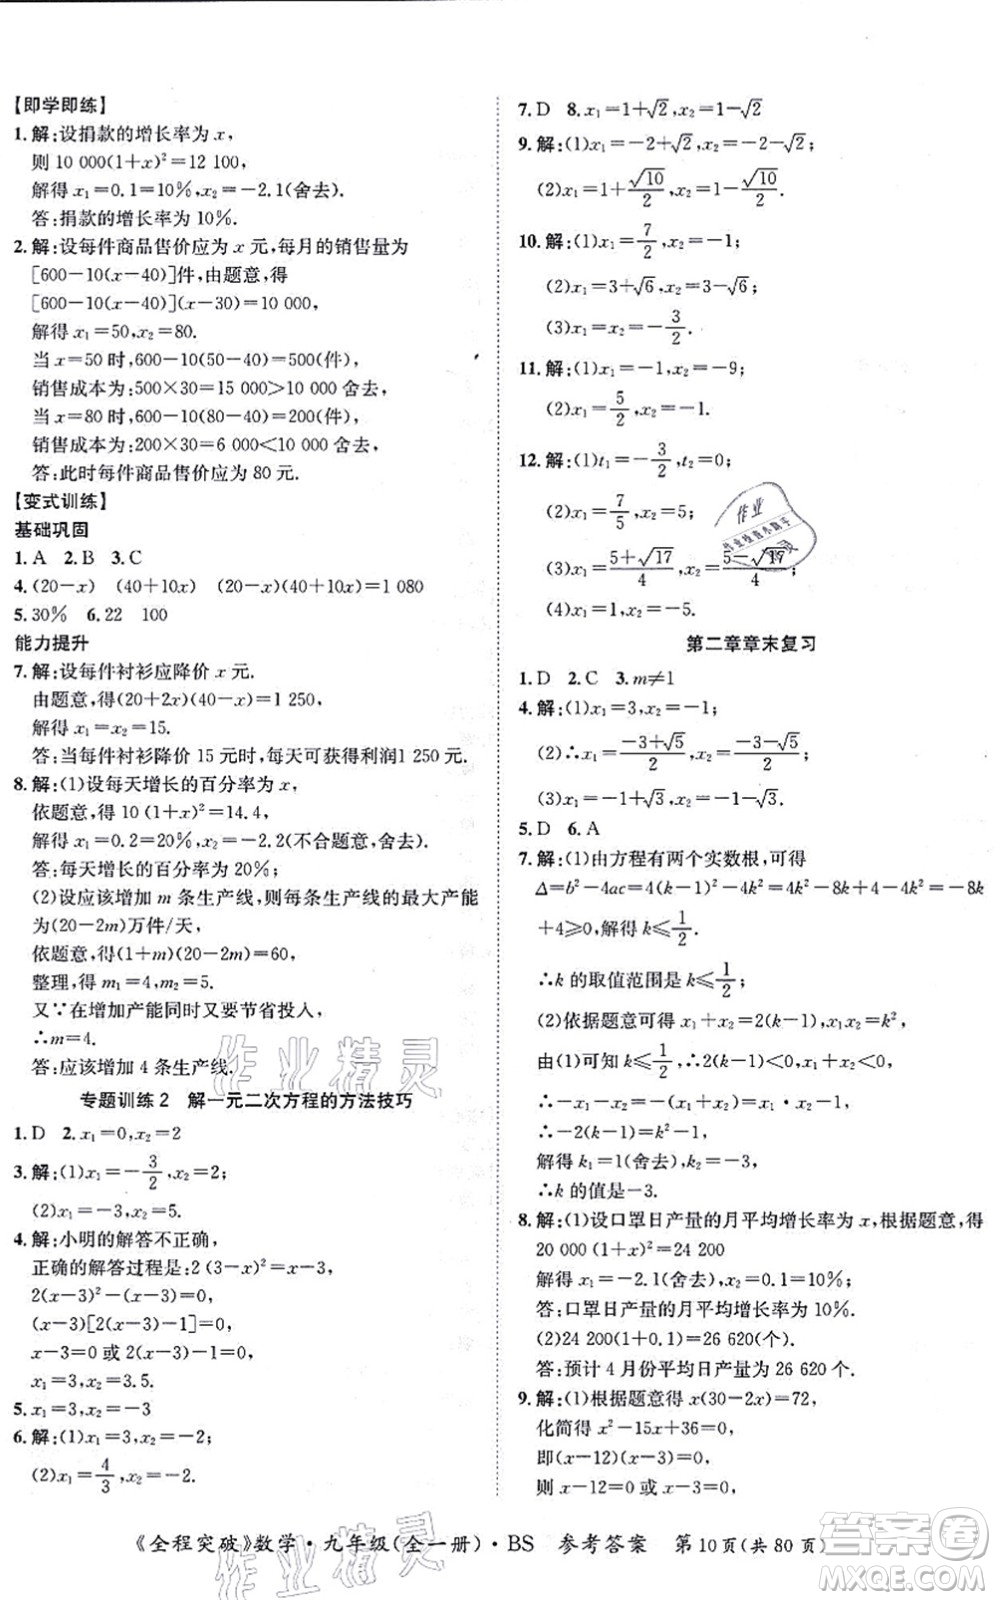 【即学即练】
1.解:设捐款的增长率为 x,
则 10 000(1+x)²=12 100,
解得 x₁=0.1=10%,x₂=-2.1(舍去).
答:捐款的增长率为 10%.
2.解:设每件商品售价应为 x 元,每月的销售量为
[600-10(x-40)]件,由题意,得
[600-10(x-40)](x-30)=10 000,
解得 x₁=50,x₂=80.
当 x=50 时,600-10(50-40)=500(件),
销售成本为:500×30=15 000>10 000 舍去,
当 x=80 时,600-10(80-40)=200(件),
销售成本为:200×30=6 000<10 000 舍去,
答:此时每件商品售价应为 80 元.
【变式训练】
基础巩固
1. A 2. B 3. C
4.(20-x) (40+10x) (20-x)(40+10x)=1 080
5.30% 6.22 100
能力提升
7.解:设每件衬衫应降价 x 元.
由题意,得(20+2x)(40-x)=1 250,
解得 x₁=x₂=15.
答:当每件衬衫降价 15 元时,每天可获得利润1 250 元.
8.解:(1)设每天增长的百分率为 x,
依题意,得 10(1+x)²=14.4,
解得 x₁=0.2=20%,x₂=-2.2(不合题意,舍去).
答:每天增长的百分率为 20%;
(2)设应该增加 m 条生产线,则每条生产线的最大产能
为(20-2m)万件/天,
依题意,得(1+m)(20-2m)=60,
整理,得 m₁=4,m₂=5.
又∵在增加产能同时又要节省投入,
∴m=4.
答:应该增加 4 条生产线.
专题训练 2 解一元二次方程的方法技巧
1. D 2. x₁=0,x₂=2
3.解:(1)x₁=-3/2,x₂=2;
(2)x₁=-3,x₂=5.
4.解:小明的解答不正确.
正确的解答过程是:2 (x-3)²=x-3,
2(x-3)²-(x-3)=0,
(x-3)[2(x-3)-1]=0,
x-3=0 或 2(x-3)-1=0,
x₁=3,x₂=3.5.
5. x₁=3,x₂=-3
6.解:(1)x₁=3,x₂=-2;
(2)x₁=4/3,x₂=-2.
7. D 8. x₁=1+√2,x₂=1-√2
9.解:(1)x₁=-2+√2,x₂=-2-√2;
(2)x₁=1+√10/2,x₂=1-√10/2.
10.解:(1)x₁=7/2,x₂=-1;
(2)x₁=3+√6,x₂=3-√6;
(3)x₁=x₂=-3/2.
11.解:(1)x₁=-1,x₂=-9;
(2)x₁=5/2,x₂=-1.
12.解:(1)t₁=-3/2,t₂=0;
(2)x₁=7/5,x₂=5;
(3)x₁=(5+√17)/4,x₂=(5-√17)/4;
(4)x₁=1,x₂=-5.
第二章章末复习
1. D 2. C 3. m≠1
4.解:(1)x₁=3,x₂=-1;
(2)∴x₁=(-3+√5)/2,x₂=(-3-√5)/2;
(3)x₁=-1+√3,x₂=-1-√3.
5. D 6. A
7.解:(1)由方程有两个实数根,可得
Δ=b²-4ac=4(k-1)²-4k²=4k²-8k+4-4k²=-8k
+4≥0,解得 k≤1/2.
∴k 的取值范围是 k≤1/2;
(2)依据题意可得 x₁+x₂=2(k-1),x₁x₂=k²,
由(1)可知 k≤1/2,∴2(k-1)<0,x₁+x₂<0,
∴-x₁-x₂=x₁·x₂-1,
∴-2(k-1)=k²-1,
解得 k₁=1(舍去),k₂=-3,
∴k 的值是-3.
8.解:(1)设口罩日产量的月平均增长率为 x,根据题意,得
20 000(1+x)²=24 200
解得 x₁=-2.1(舍去),x₂=0.1=10%;
答:口罩日产量的月平均增长率为 10%.
(2)24 200(1+0.1)=26 620(个).
答:预计 4 月份平均日产量为 26 620 个.
9.解:(1)根据题意得 x(30-2x)=72,
化简得 x²-15x+36=0,
即(x-12)(x-3)=0,
则 x-12=0 或 x-3=0,
《全程突破》数学·九年级(全一册)·BS 参考答案 第 10页(共 80 页)
作业精灵
作业精灵
答案圈
MXQE.COM